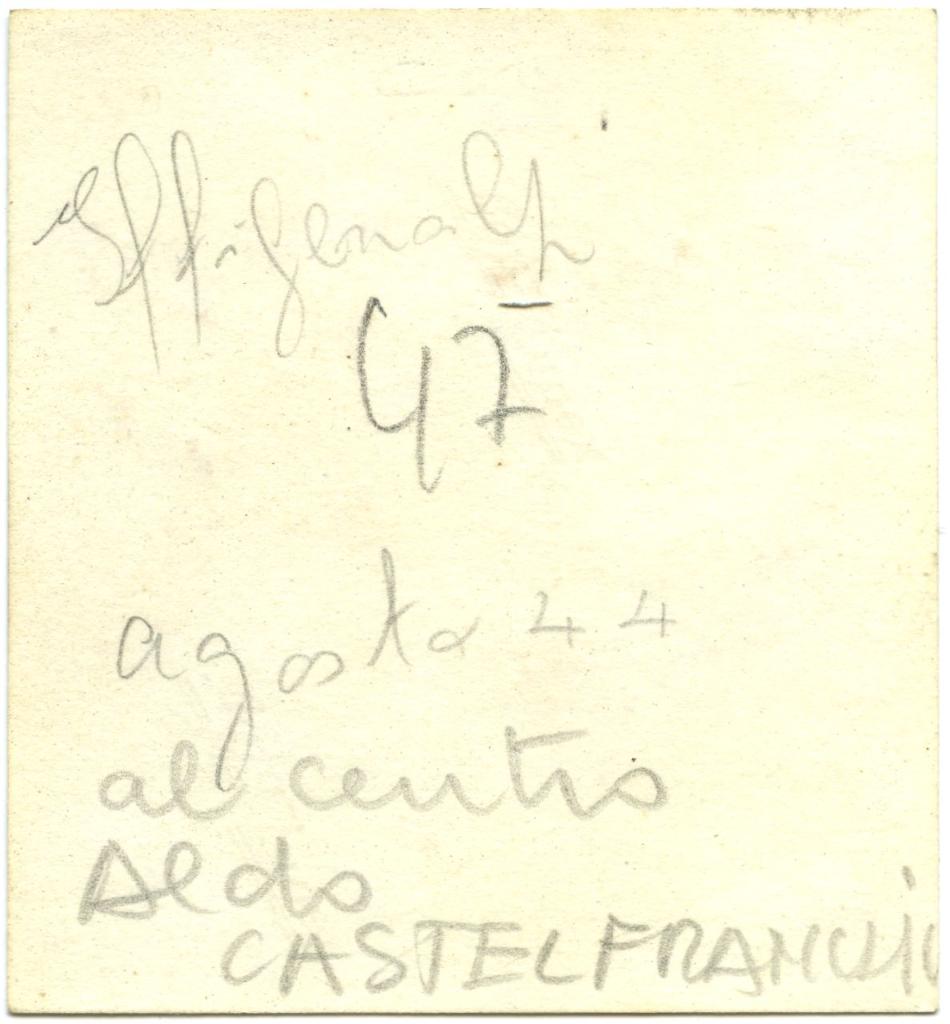 47
agosto 44
al centro
Aldo
CASTELFRANCHI